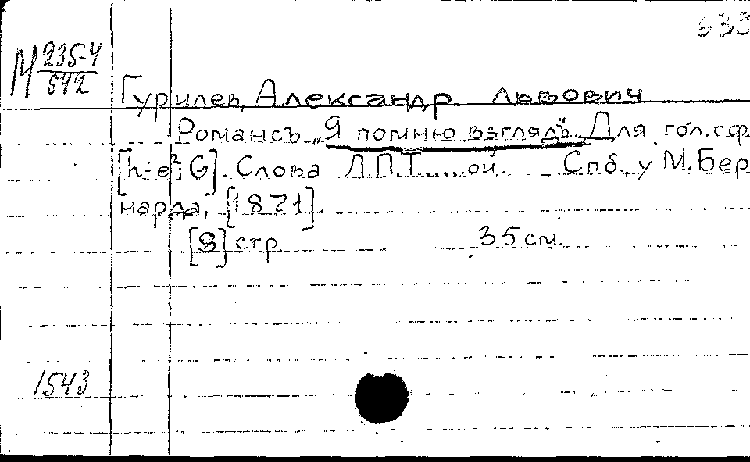 633
М 235-4
542
Гурилев, Александр Львович
Романсъ „Я помню взглядъ". Для гол. с ф.
[h-e²; G]. Слова Д.П.Т.....ой. Спб., у М. Бер
нарда, [1871].
[8] стр. 35 см.
1543